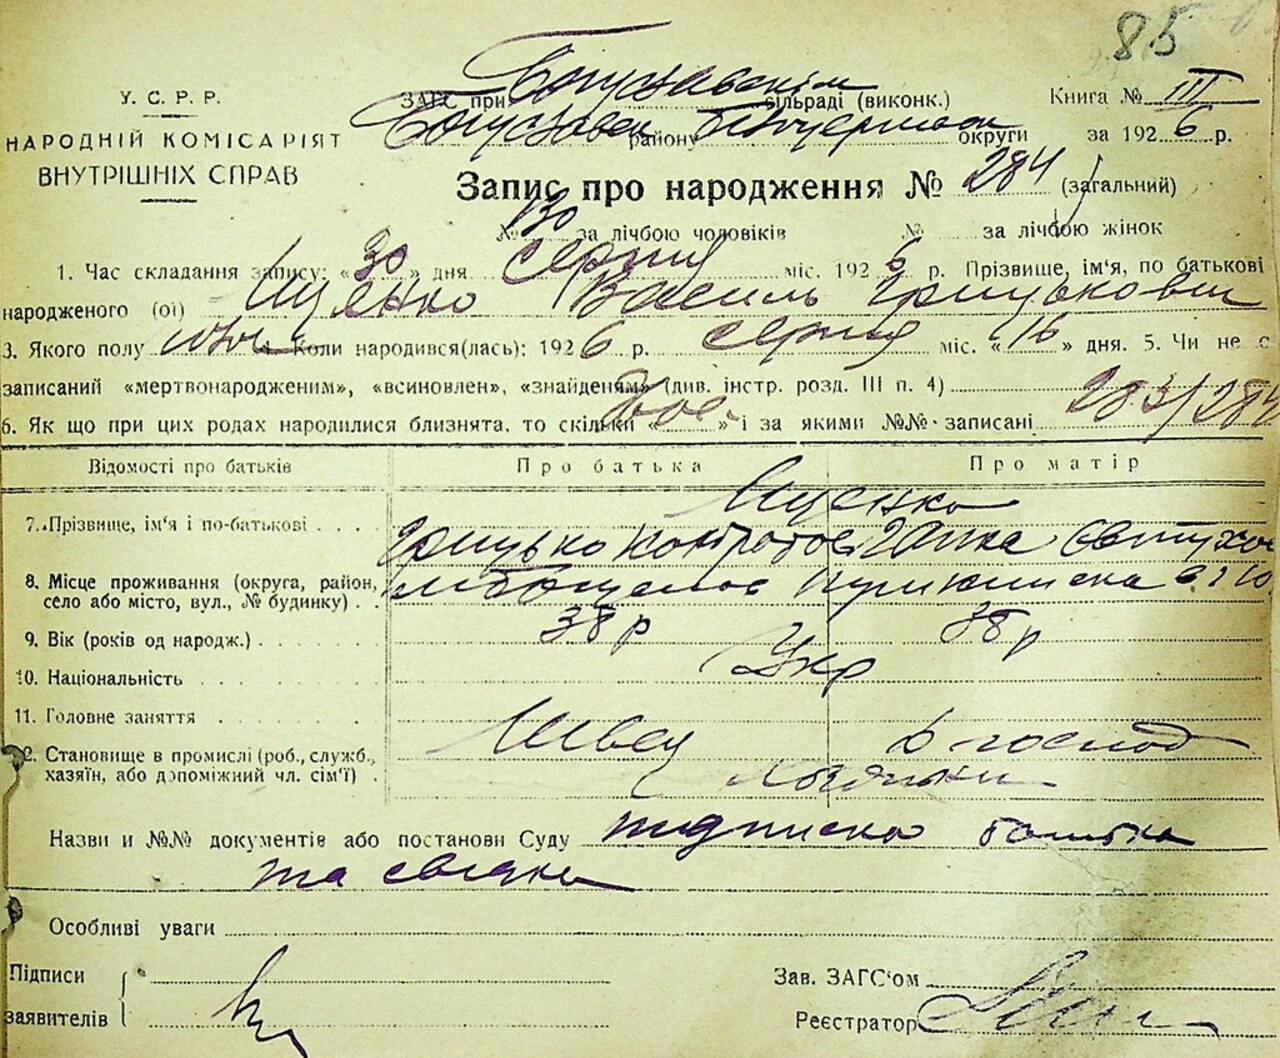 85
У. С. Р. Р.
НАРОДНІЙ КОМІСАРІЯТ
ВНУТРІШНІХ СПРАВ
ЗАГС при Богуславскім сільраді (виконк.)
Богуславск району Білоцерківськ округи
Книга № III
за 1926 р.
Запис про народження № 284 (загальний)
№ 130 за лічбою чоловіків № за лічбою жінок
1. Час складання запису: «30» дня серпня міс. 1926 р. Прізвище, ім'я, по батькові
народженого (ої) Іщенко Василь Грицькович
3. Якого полу чол Коли народився(лась): 1926 р. серпня міс. «16» дня. 5. Чи не є
записаний «мертвонародженим», «всиновлен», «знайденям» (див. інстр. розд. III п. 4)
6. Як що при цих родах народилися близнята, то скільки «двоє» і за якими №№ записані 283/284
Відомості про батьків Про батька Про матір
7. Прізвище, ім'я і по-батькові Іщенко
Грицько Ганна
8. Місце проживання (округа, район,
село або місто, вул., № будинку)
9. Вік (років од народж.) 38 р 38 р
10. Національність Укр
11. Головне заняття Швец Д господ
12. Становище в промислі (роб., служб.,
хазяїн, або допоміжний чл. сім'ї)
Назви и №№ документів або постанови Суду підписка батька
та свідки
Особливі уваги
Підписи
заявителів
Зав. ЗАГС'ом
Реєстратор